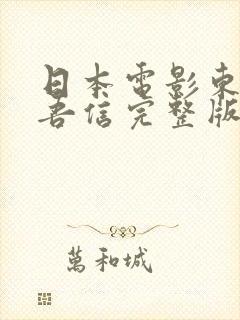 日本電影東
吾信完整版
萬和城